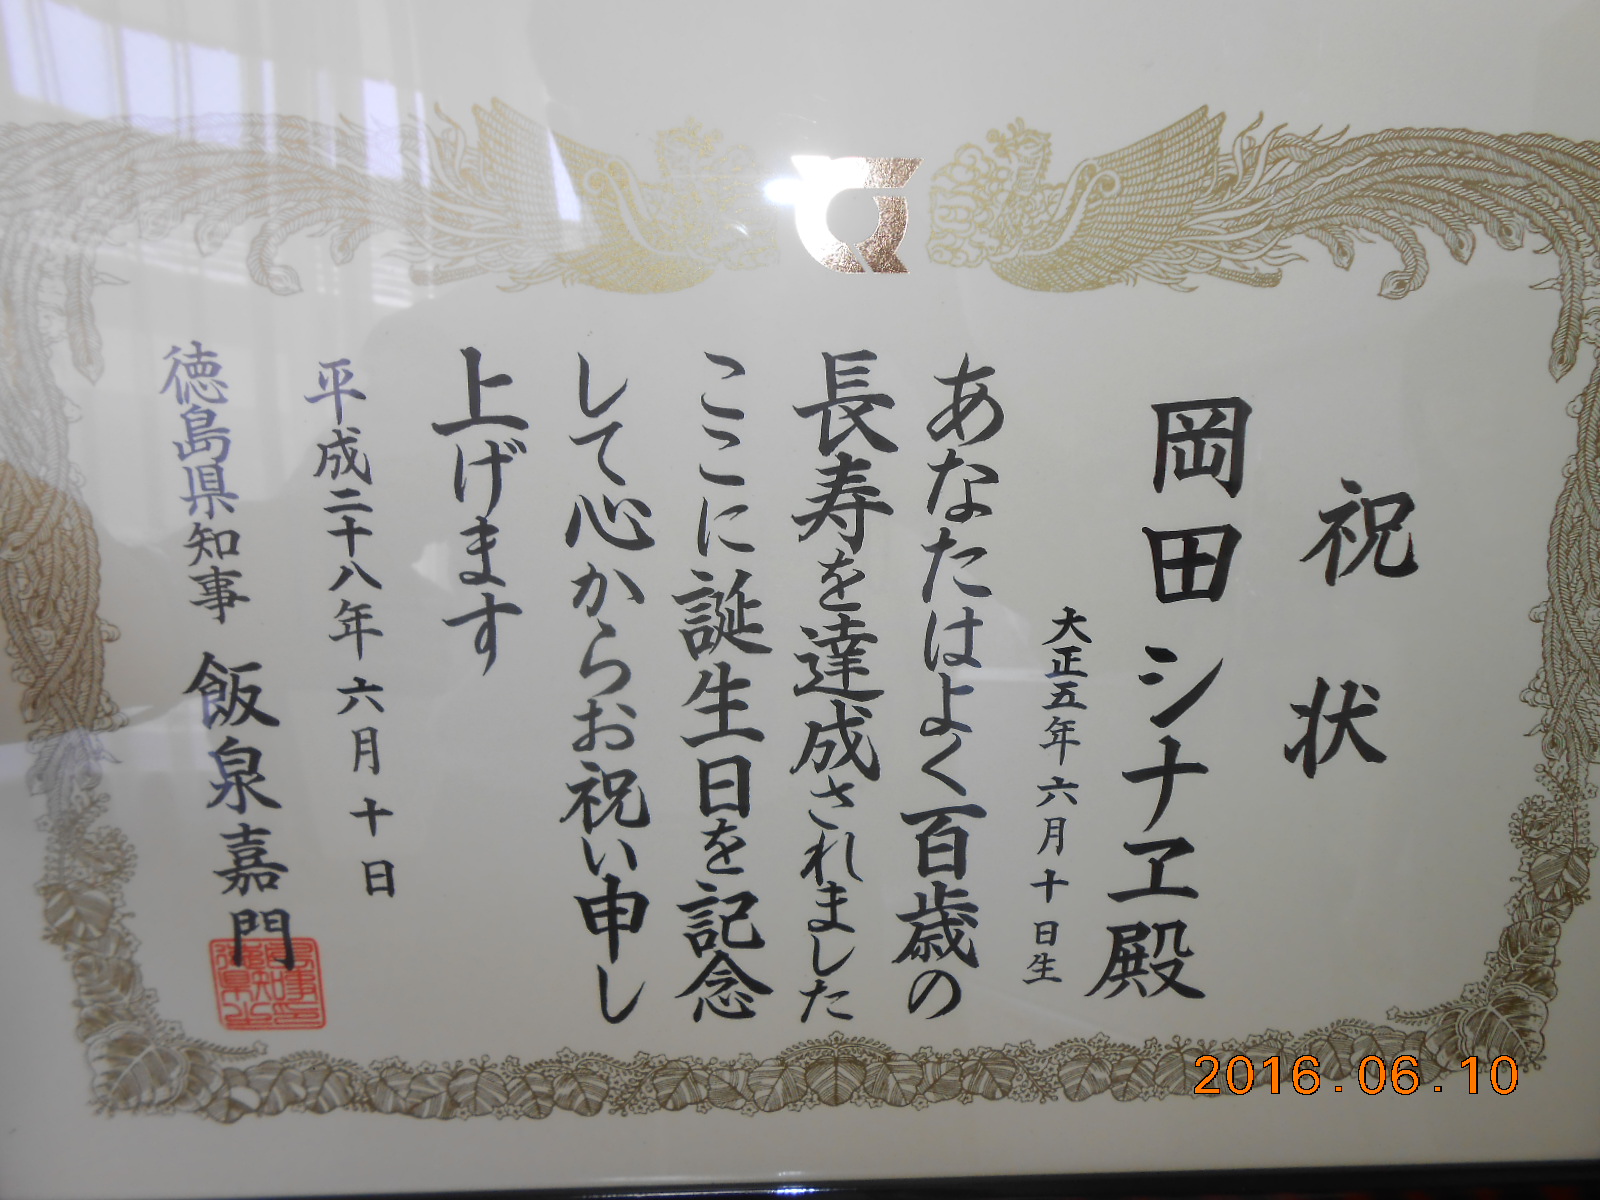 祝状
岡田シナヱ殿
大正五年六月十日生
あなたはよく百歳の
長寿を達成されました
ここに誕生日を記念
して心からお祝い申し
上げます
平成二十八年六月十日
徳島県知事 飯泉嘉門
2016.06.10